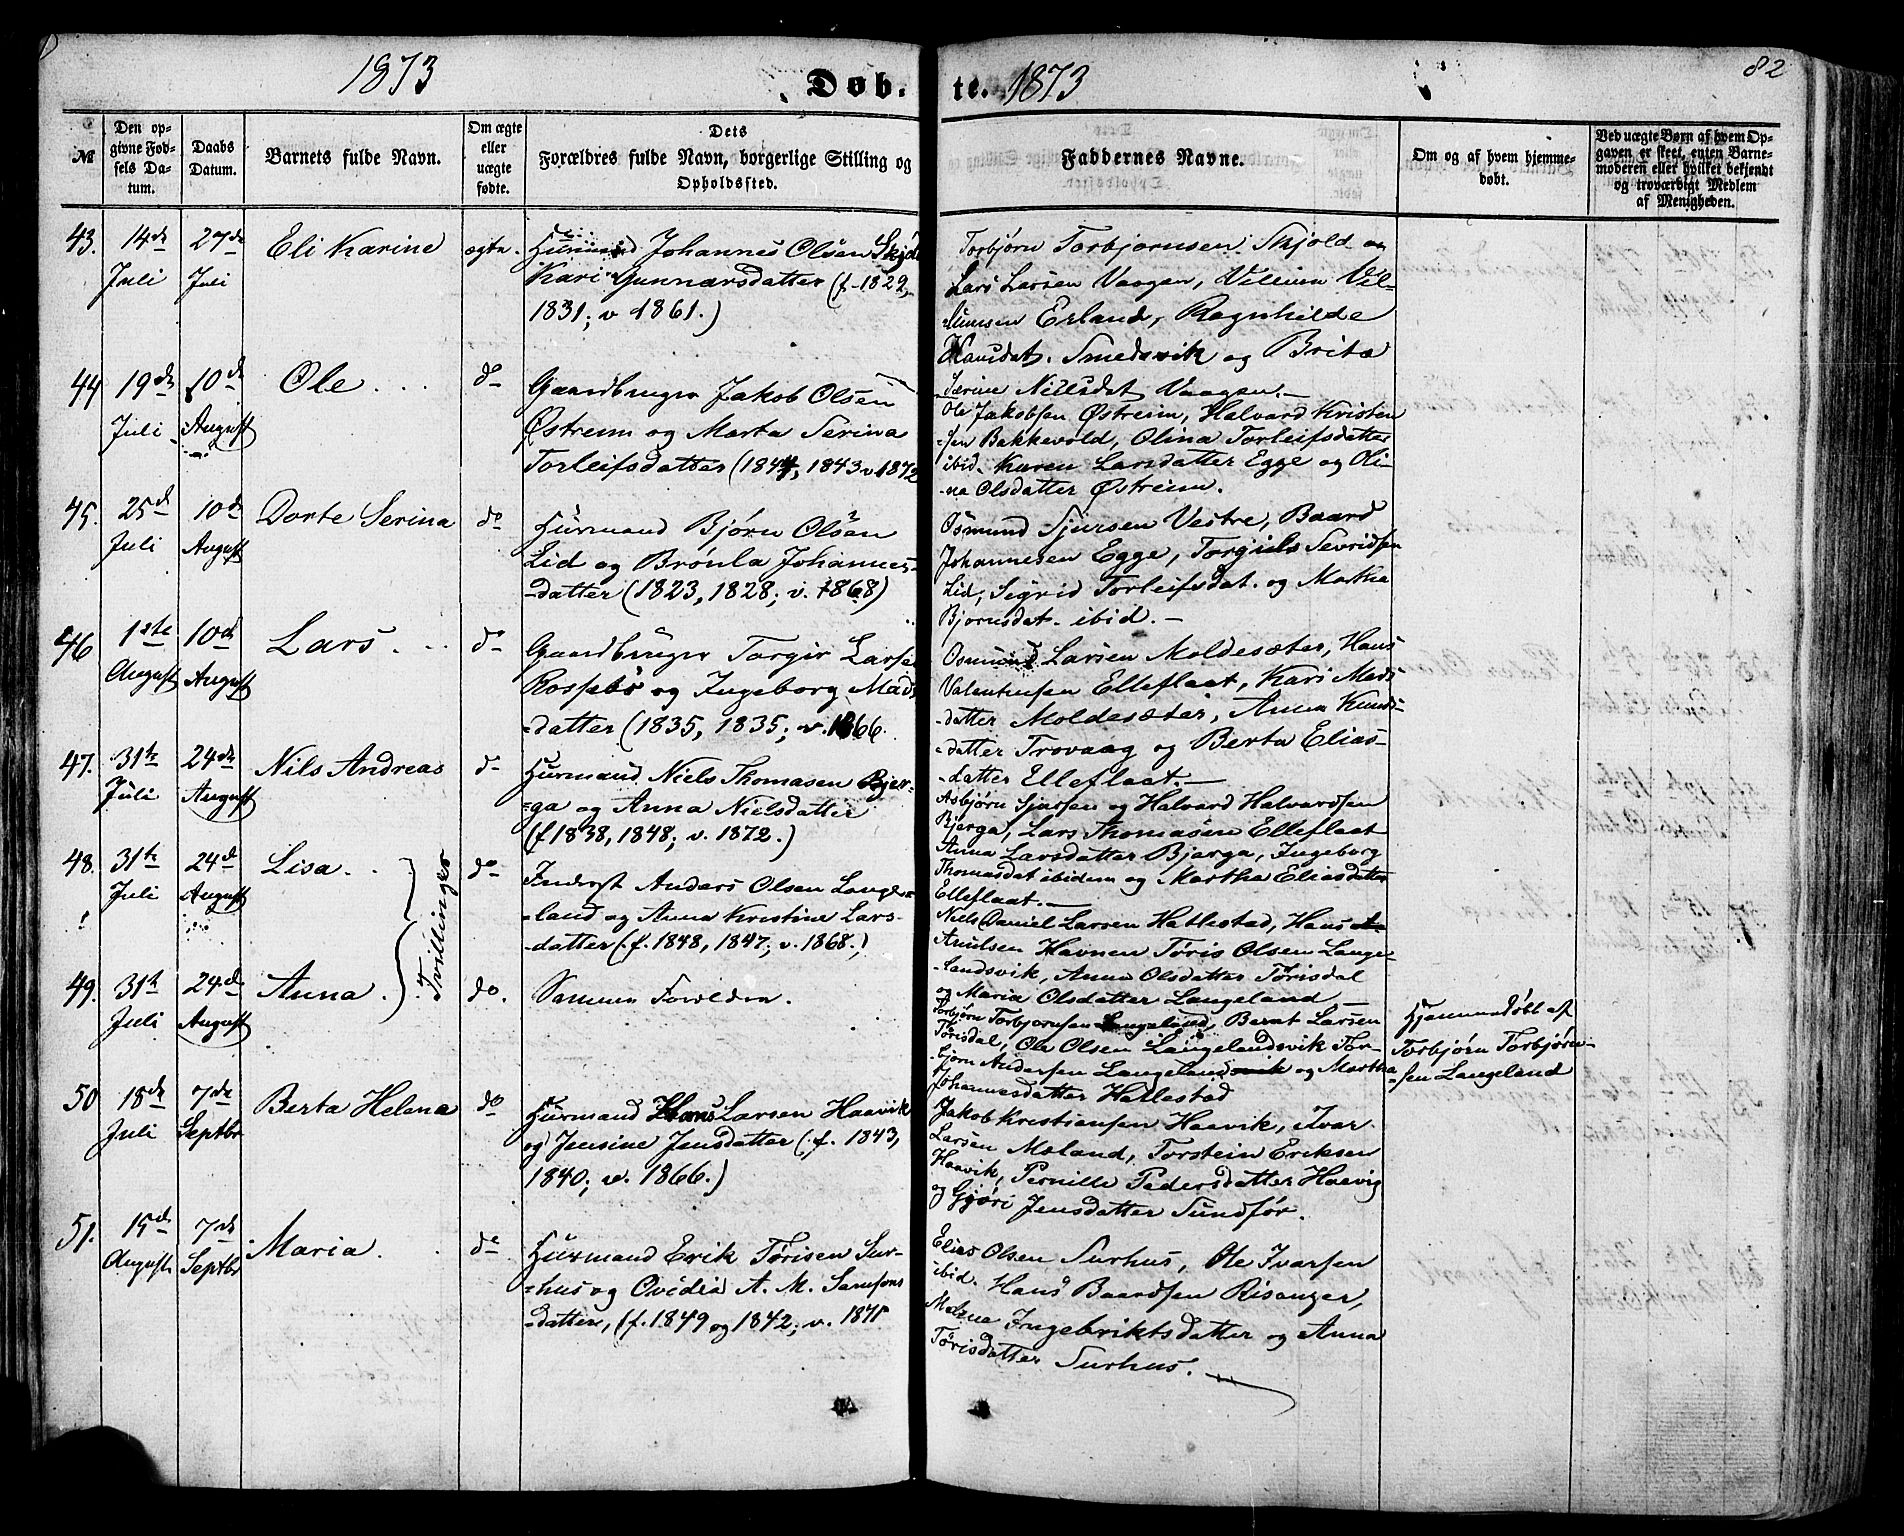 1873
Døb.
te. 1873
82
№
Den opgivne Fødsels Datum.
Daabs Datum.
Barnets fulde Navn.
Om ægte eller uægte fødte.
Dets Forældres fulde Navn, borgerlige Stilling og Opholdssted.
Faddernes Navne.
Om og af hvem hjemmedøbt.
Ved uægte Børn af hvem Opgaven er skeet, enten Barnemoderen eller hvilket bekjendt og troværdigt Medlem af Menigheden.
43. 14de Juli 27de Juli Eli Karine ægte.
Huusmand Johannes Olsen
Kari Gunnarsdatter (f. 1822,
1831; v 1861.)
Torbjørn Torbjørnsen Skjold og
Lars Larsen Vaagen, Villum Vil-
-lumsen Erland, Ragnhilde
Hansdat. Smedsvik og Brita
Serine Nilsdat Vaagen.-
44 19de Juli 10de August Ole do
Gaardbruger Jakob Olsen
Østreim og Marta Serina
Torleifsdatter (1844, 1843 v 1872
Ole Jakobsen Østreim, Halvard Kristen
-sen Bakkevold, Olina Torleifsdatter
ibid. Karen Larsdatter Egge og Oli-
na Olsdatter Østreim.
45. 25de Juli 10de August Dorte Serina do
Huusmand Bjørn Olsen
Lid og Brønla Johannes-
-datter (1823, 1828; v. 1868)
Osmund Sjursen Vestre, Baard
Johannesen Egge, Torgils Sevridsen
Lid, Sigrid Torleifsdat. og Martha
Bjørnsdat. ibid.-
46 1ste August 10de August Lars do
Gaardbruger Torgir Larsen
Rossebø og Ingeborg Mads
-datter (1835, 1835; v. 1866.
Osmund Larsen Moldesæter, Hans
Valentinsen Elleflaat, Kari Mads-
-datter Moldesæter, Anna Knuds-
-datter Trovaag og Berta Elias-
-datter Elleflaat.-
47. 31te Juli 24de August Nils Andreas do
Huusmand Niels Thomasen Bjer-
-ga og Anna Nielsdatter
(f 1838, 1848; v. 1872.)
Asbjørn Sjursen og Halvard Halvardsen
Bjerga, Lars Thomasen Elleflaat
Anna Larsdatter Bjerga, Ingeborg
Thomasdat ibidem og Martha Eliasdatter
Elleflaat.-
48. 31te Juli 24de August Lisa. Tvillinger do
Inderst Anders Olsen Lange-
-land og Anna Kristine Lars-
-datter (f. 1848, 1847; v. 1868.)
Niels Daniel Larsen Hatlestad, Hans
Amlsen Havnen Tøris Olsen Lange-
-landsvik, Anna Olsdatter Tørisdal
og Maria Olsdatter Langeland-
49. 31te Juli 24de August Anna. do.
Samme Forældre.
Torbjørn Torbjørnsen Langeland, Berat Larsen
Tørisdal, Ole Olsen Langelandsvik Tor-
-bjørn Andersen Langeland og Martha
Johannesdatter Hatlestad
Hjemmedøbt af
Torbjørn Torbjørn-
-sen Langeland
50 18de Juli 7de Septbr Berta Helena do
Huusmand Hans Larsen Haavik
og Jensine Jensdatter (f. 1843,
1840; v. 1866.)
Jakob Kristiansen Haavik, Ivar
Larsen Moland, Torstein Eriksen
Haavik, Pernille Pedersdatter Haavig
og Gjøri Jensdatter Sundfør.
51. 15de August 7de Septbr Maria. do
Huusmand Erik Tørisen Sur-
-hus og Ovidia A. M. Samsons
-datter, (f. 1849 og 1842; v. 1871
Elias Olsen Surhus, Ole Ivarsen
ibid. Hans Baardsen Risanger,
Malene Ingebriktsdatter og Anna
Tørisdatter Surhus.